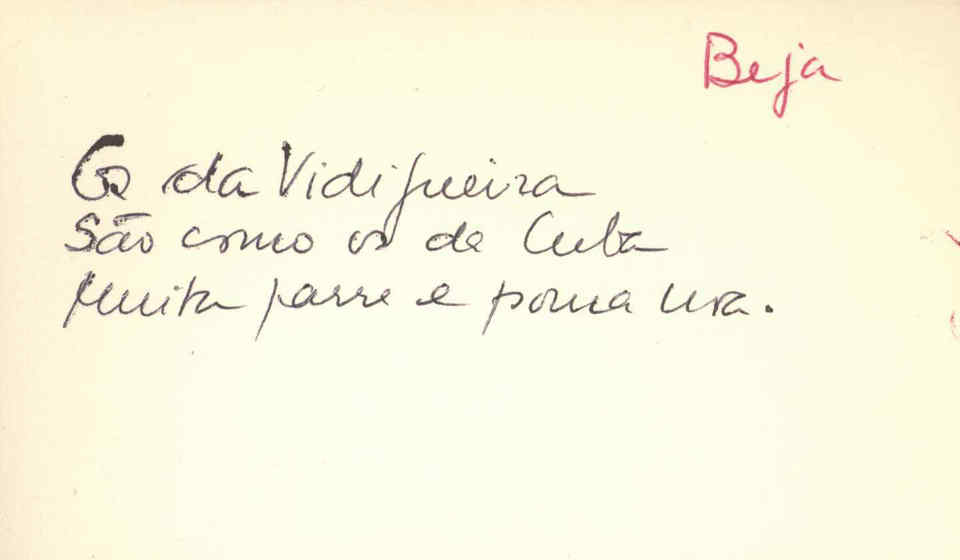 Beja
Os da Vidigueira
São como os de Cuba
Muita parra e pouca uva.